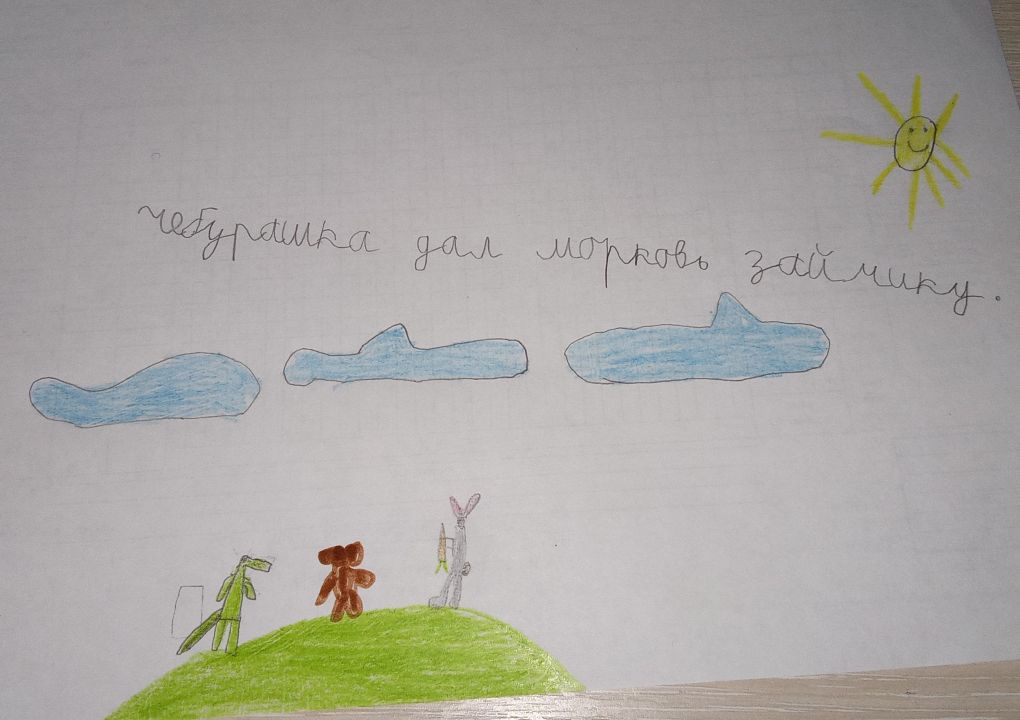 Чебурашка дал морковь зайчику.